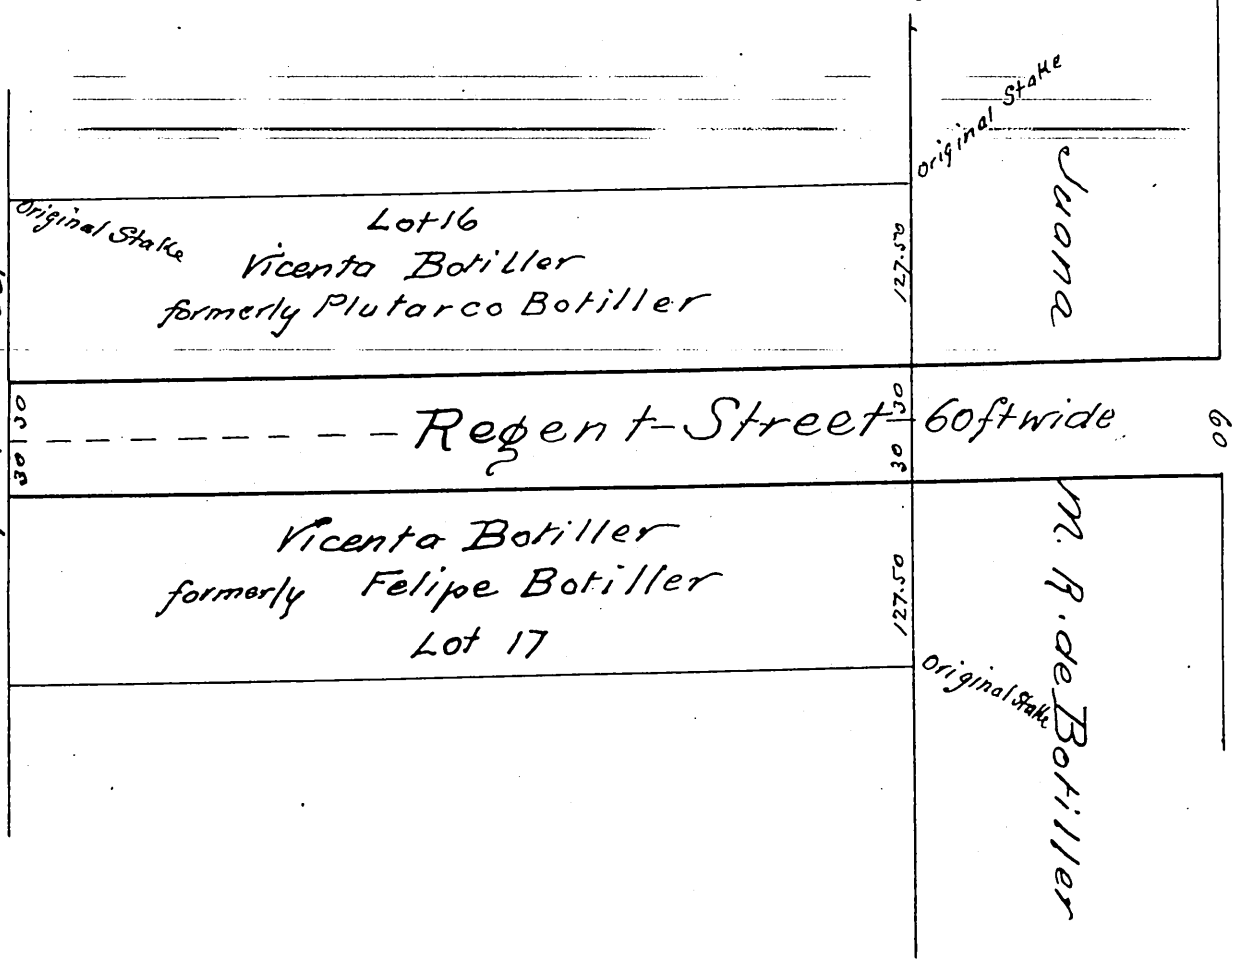 Original Stake
Original Stake
Lot 16
Vicenta Botiller
formerly Plutarco Botiller
127.50
Juana
30 30
Regent Street
30 30
60 ft wide
60
Vicenta Botiller
formerly Felipe Botiller
Lot 17
127.50
Original Stake
M. R. de Botiller